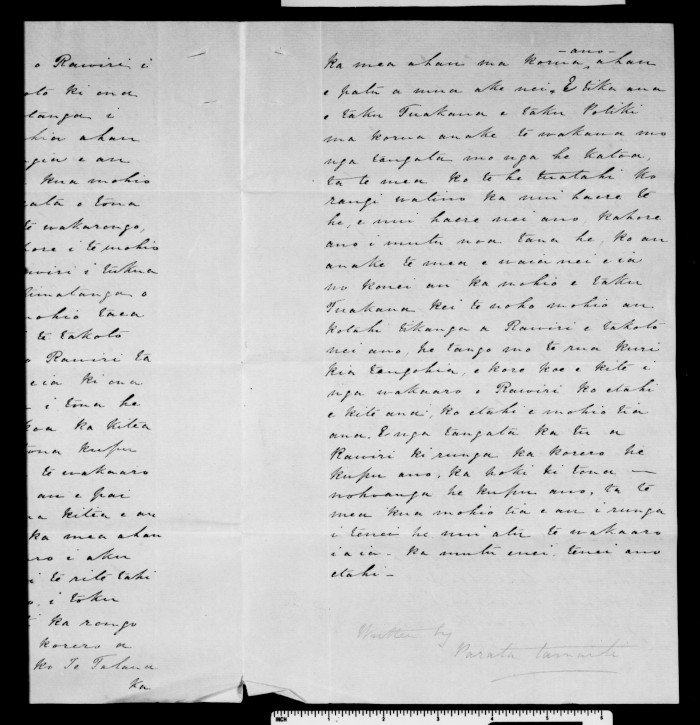 o Rawiri i
oto ki ona
tanga i
ahan
ngia e an
kua mohio
gata o tona
te wakarongo,
hore i te mohio
Rawiri i tukua
timatanga o
mohio taea
i te takoto
o Rawiri ta
eia ki ona
i tona he
koa ka kitea
tona kupu
te wakaaro
an e pai
na kitea e an
ka mea ahau
ro i aku
i te rite tahi
o, i toku
ka rongo
korero a
ko Te Talana
Ka
ka mea ahau ma korua ano ahau
e patu a mua ake nei. E tika ana
e taku Tuakana e taku Potiki
ma korua anake te wakawa mo
nga tangata mo nga he katoa,
ta te mea ko te he tuatahi ko
rangi watino ka nui haere te
he, e nui haere nei ano, kahore
ano i mutu noa tana he, ko an
anake te mea e waia nei e ia
no konei an ka mohio e taku
Tuakana kei te noho mohio an
kotahi tikanga a Rawiri e takoto
nei ano, he tango mo te rua kuri
kia tangohia, e kore koe e kite i
nga wakaaro o Rawiri ko etahi
e kite ana, ko etahi e mohio tia
ana. E nga tangata ka tu a
Rawiri ki runga ka korero he
kupu ano, ka hoki ki tona —
nohoanga he kupu ano, ta te
mea kua mohio tia e an i runga
i tenei he nui atu te wakaaro
i a ia - ka mutu enei. tenei ano
etahi -
Written by
Parata